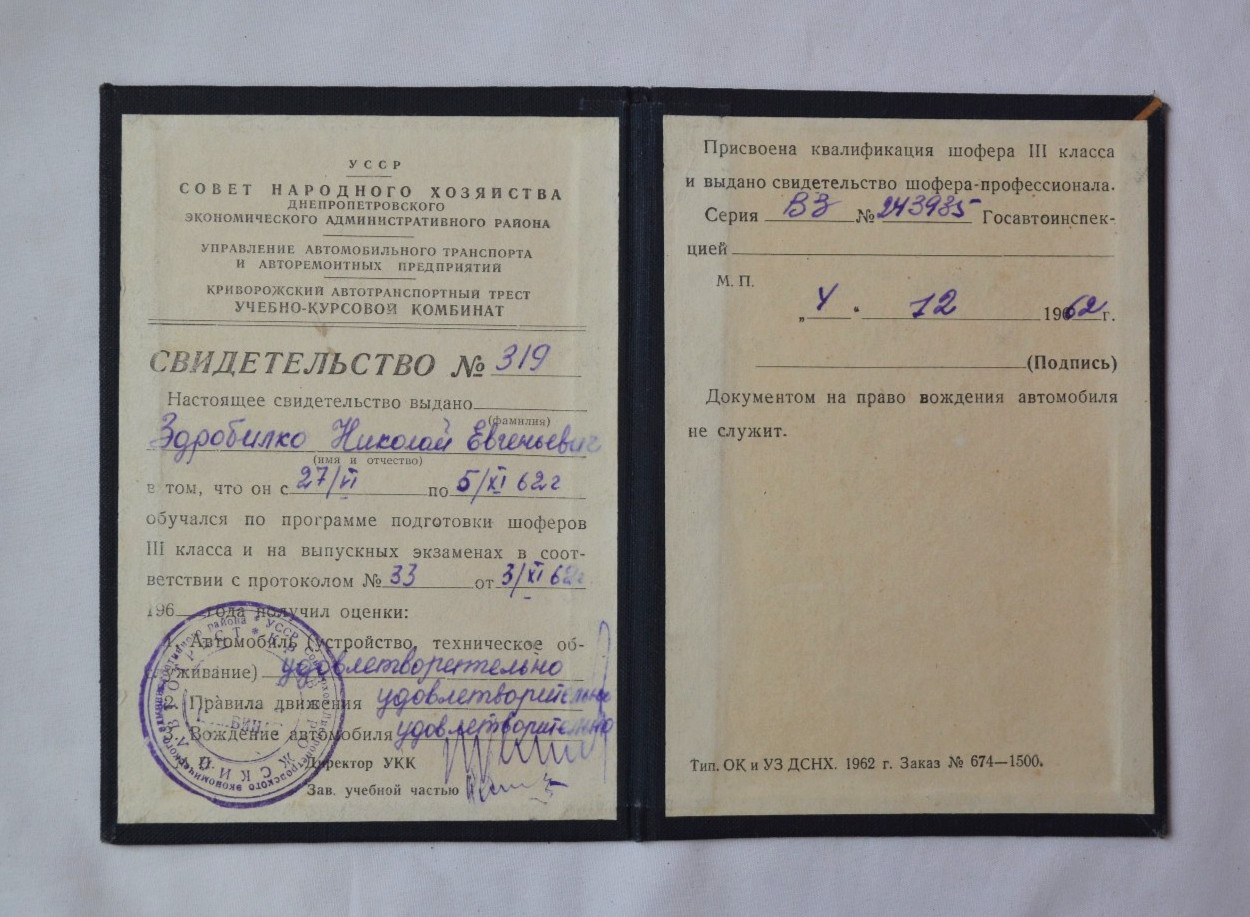 УССР
СОВЕТ НАРОДНОГО ХОЗЯЙСТВА
ДНЕПРОПЕТРОВСКОГО
ЭКОНОМИЧЕСКОГО АДМИНИСТРАТИВНОГО РАЙОНА
УПРАВЛЕНИЕ АВТОМОБИЛЬНОГО ТРАНСПОРТА
И АВТОРЕМОНТНЫХ ПРЕДПРИЯТИЙ
КРИВОРОЖСКИЙ АВТОТРАНСПОРТНЫЙ ТРЕСТ
УЧЕБНО-КУРСОВОЙ КОМБИНАТ
СВИДЕТЕЛЬСТВО № 319
Настоящее свидетельство выдано
(фамилия)
Здробилко Николай Евгеньевич
(имя и отчество)
в том, что он с 27/VI по 5/XI 62г
обучался по программе подготовки шоферов
III класса и на выпускных экзаменах в соот-
ветствии с протоколом № 33 от 3/XI 62г.
196 года получил оценки:
1. Автомобиль (устройство, техническое об-
служивание) удовлетворительно
2. Правила движения удовлетворительно
3. Вождение автомобиля удовлетворительно
Директор УКК
Зав. учебной частью
Присвоена квалификация шофера III класса
и выдано свидетельство шофера-профессионала.
Серия ВЗ № 243985 Госавтоинспек-
цией
М. П.
„ 4 “ 12 1962 г.
(Подпись)
Документом на право вождения автомобиля
не служит.
Тип. ОК и УЗ ДСНХ. 1962 г. Заказ № 674—1500.